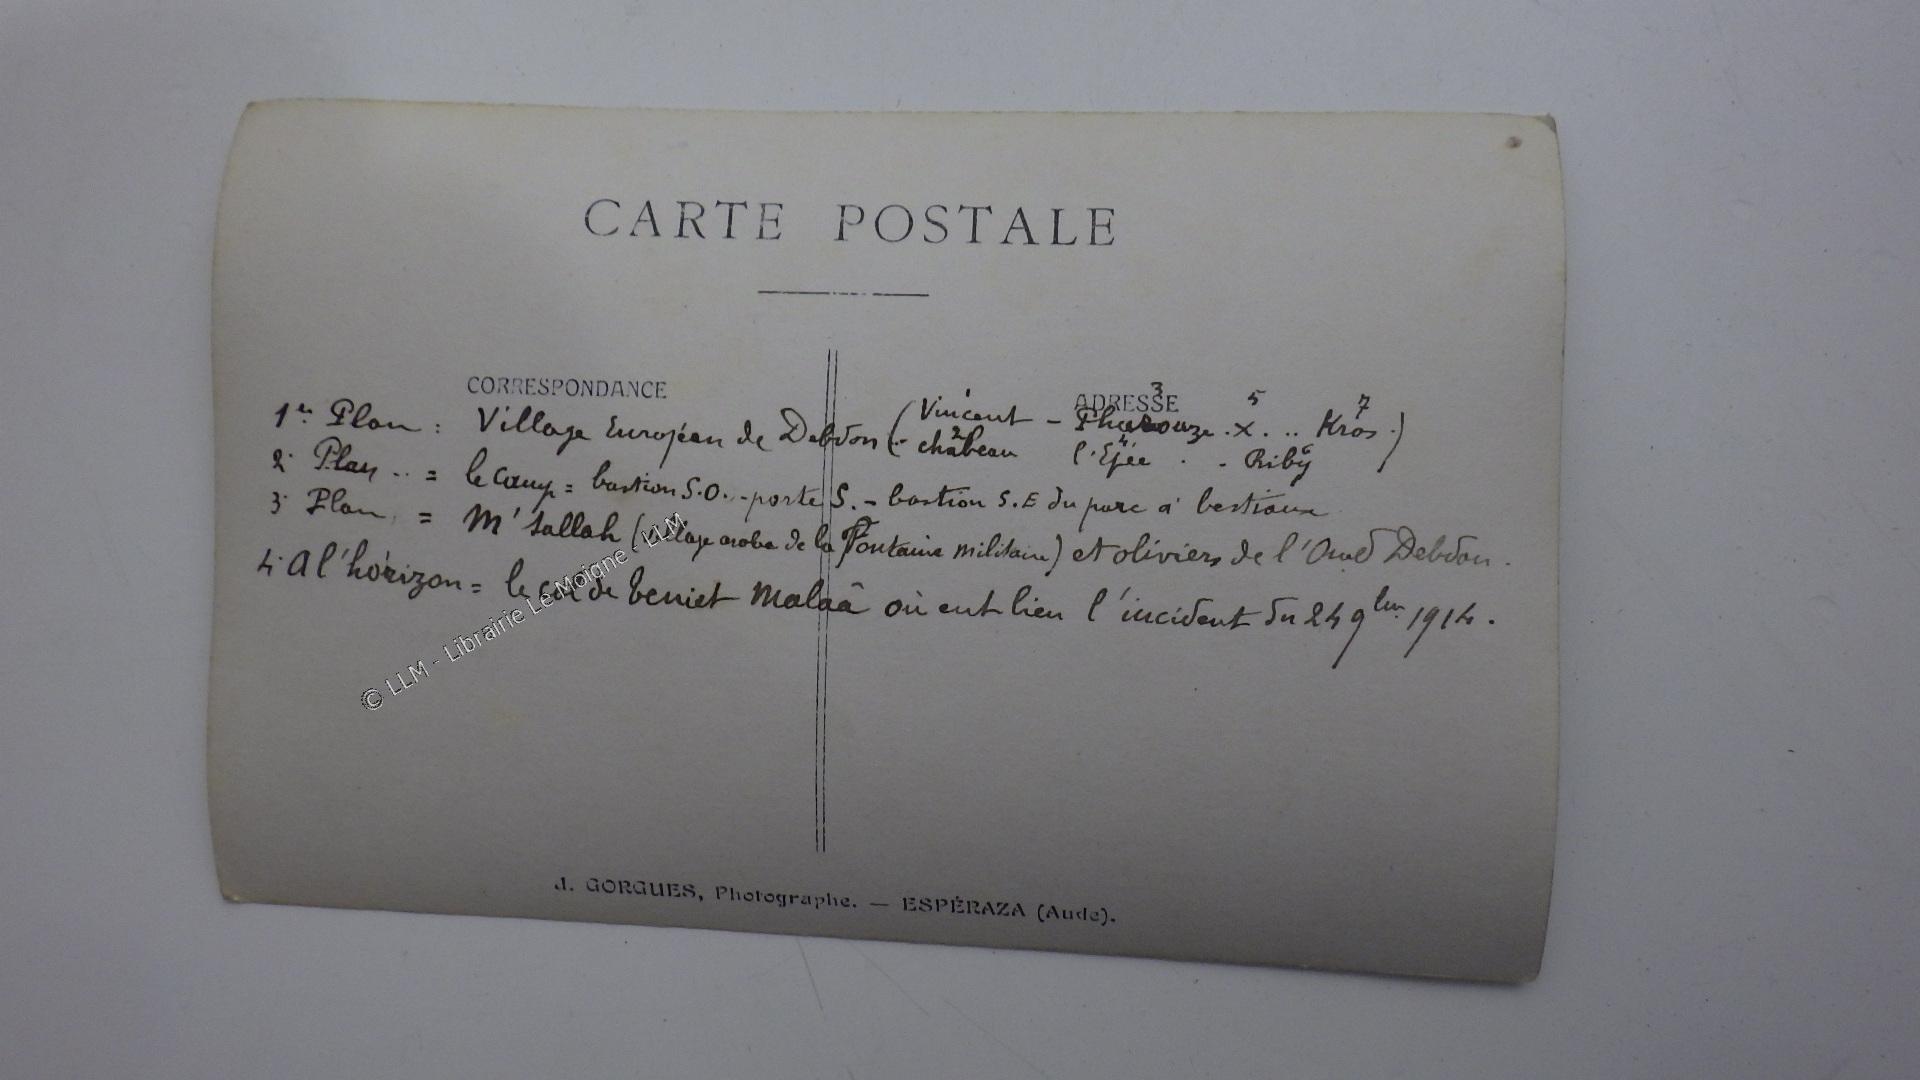 CARTE POSTALE
CORRESPONDANCE
ADRESSE
1er Plan : Village Européen de Debdou (Vincent - . X . .. Kros.)
1 3 5 7
château l'Epée . - Riby
2 4 6
2. Plan .. = le camp = bastion S.O. - porte S. - bastion S.E du parc à bestiaux
3. Plan = M'Sallah (village arabe de la Fontaine militaire) et oliviers de l'Oued Debdou.
4. A l'horizon = le col de Malaâ où eut lieu l'incident du 24 9bre 1914.
© LLM - Librairie Le Moigne - LLM
J. GORGUES, Photographe. — ESPÉRAZA (Aude).